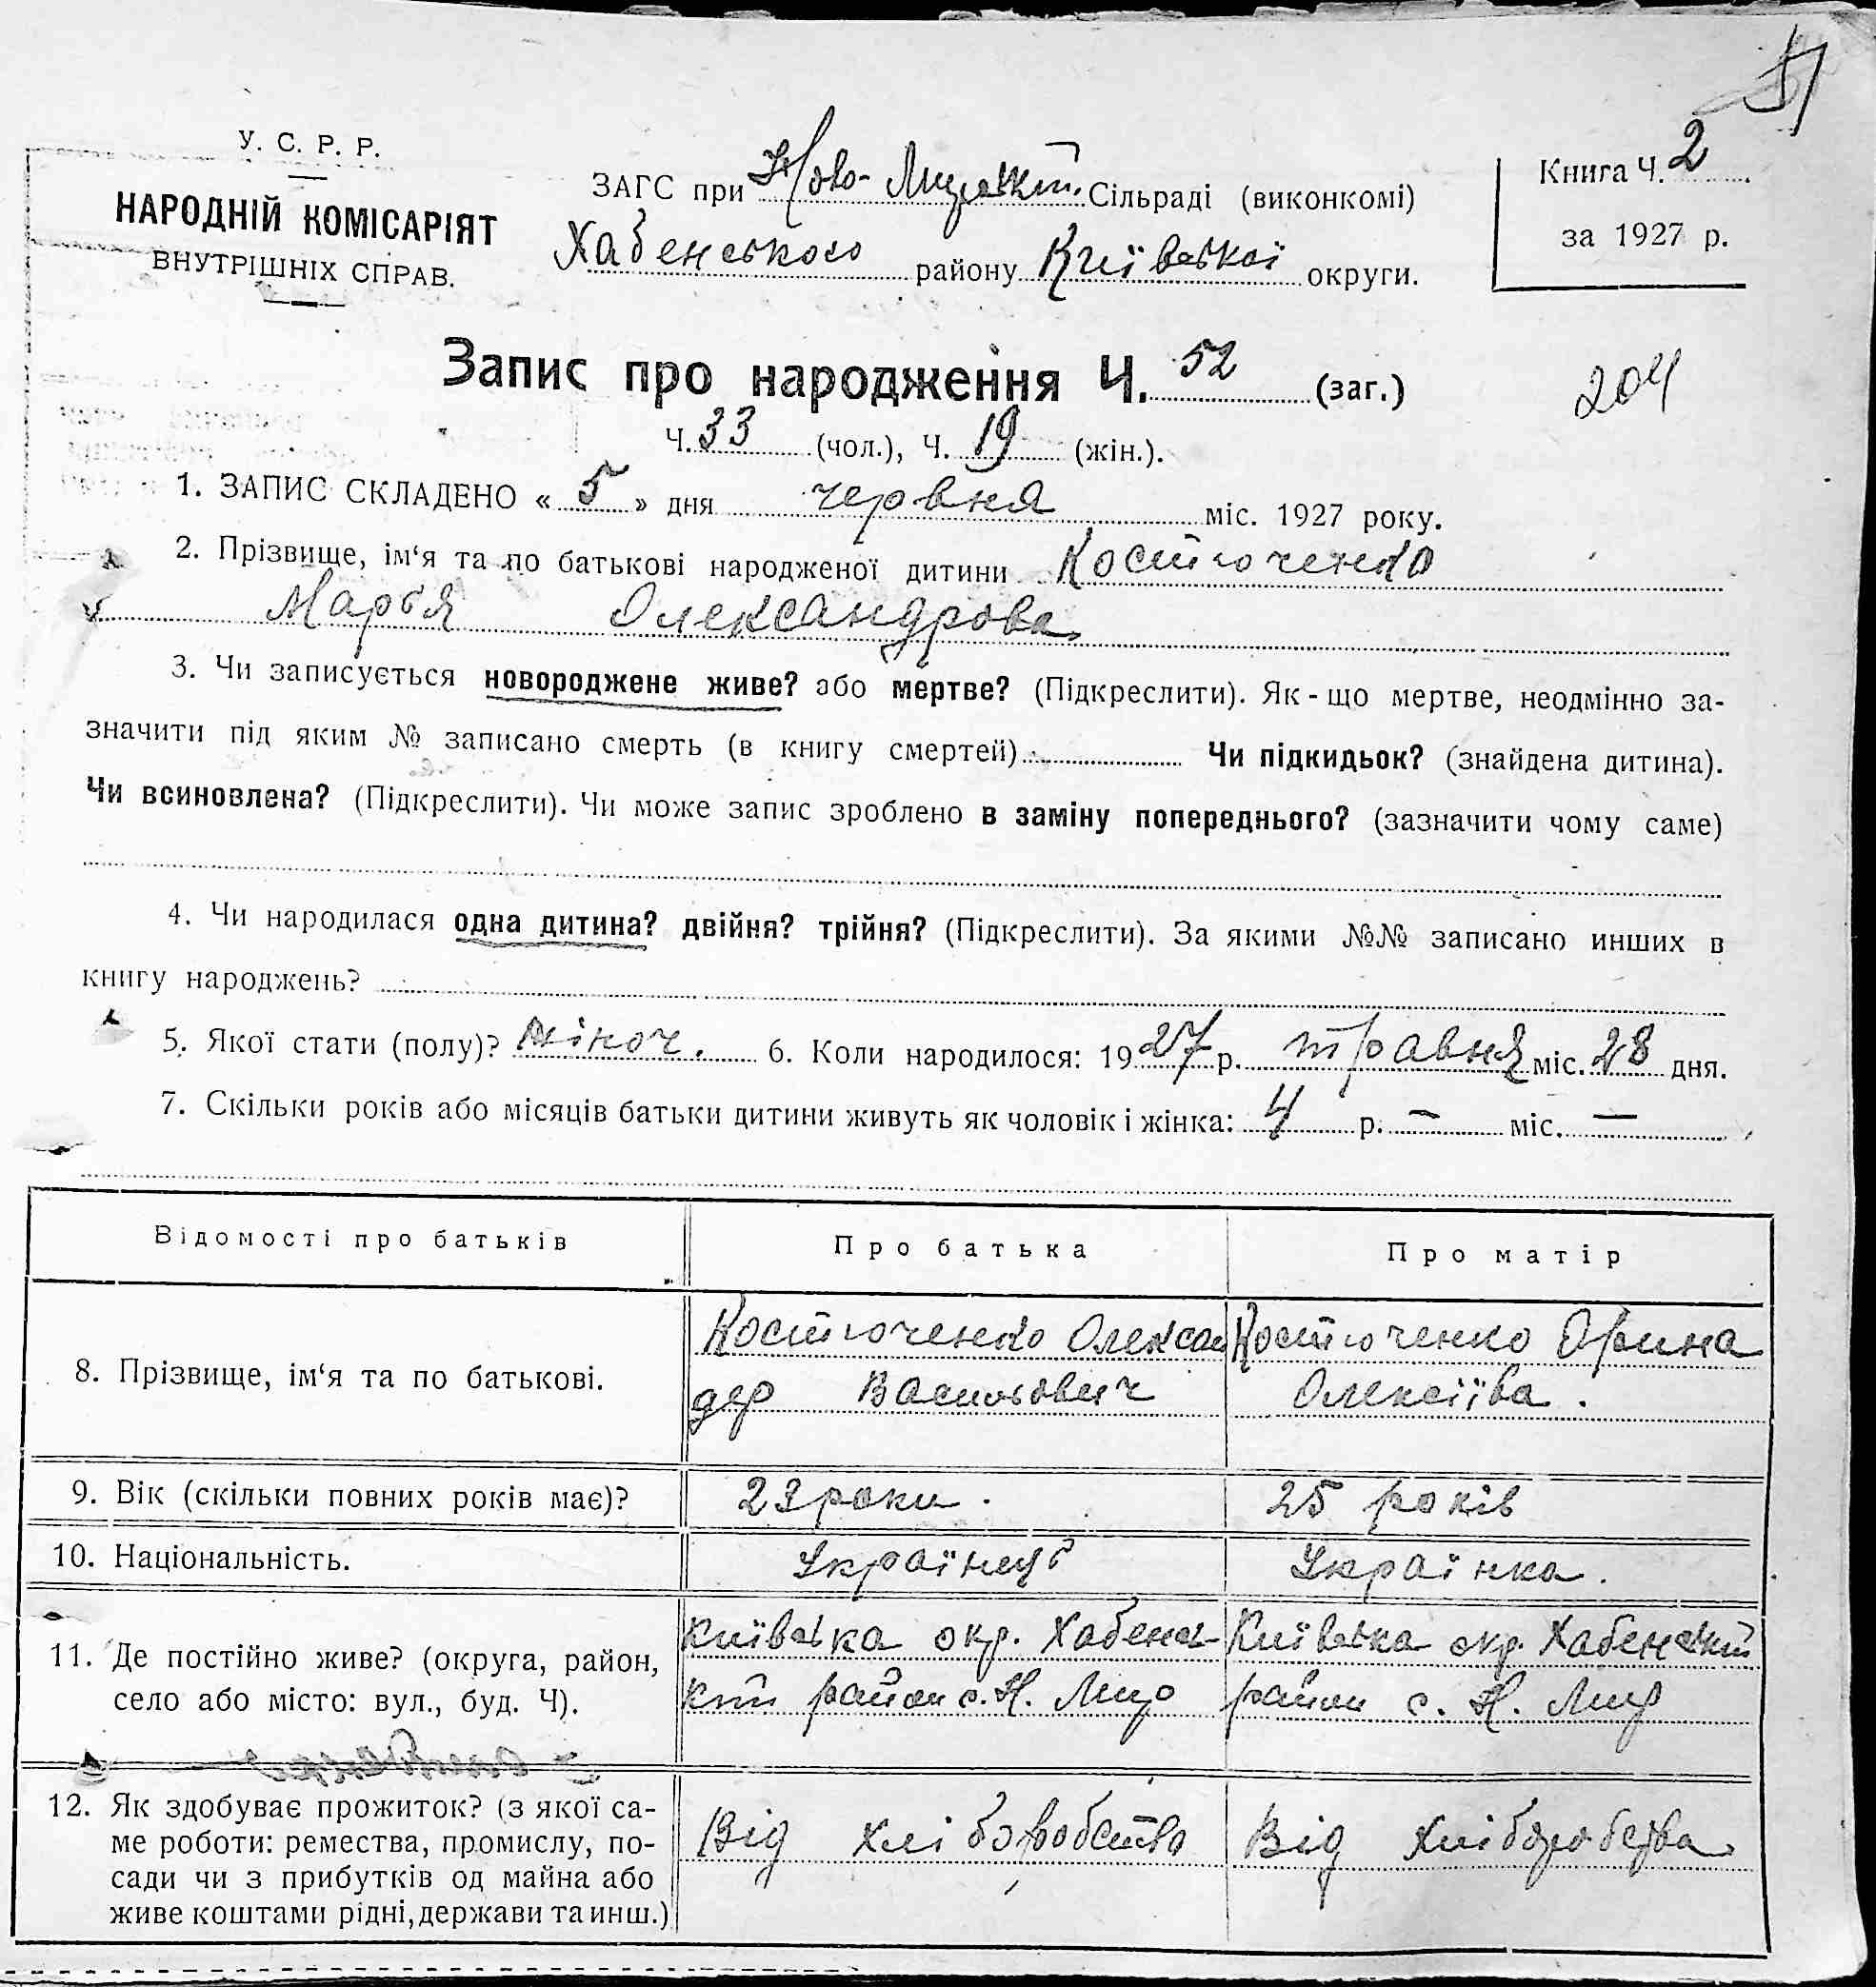 51
У. С. Р. Р.
НАРОДНІЙ КОМІСАРІЯТ
ВНУТРІШНІХ СПРАВ.
ЗАГС при Ново-Мирській Сільраді (виконкомі)
Хабенського району Київської округи.
Книга Ч. 2
за 1927 р.
Запис про народження Ч. 52 (заг.)
204
Ч. 33 (чол.), Ч. 19 (жін.).
1. ЗАПИС СКЛАДЕНО « 5 » дня червня міс. 1927 року.
2. Прізвище, ім‘я та по батькові народженої дитини Костюченко
Марья Олександрова
3. Чи записується новороджене живе? або мертве? (Підкреслити). Як - що мертве, неодмінно за-
значити під яким № записано смерть (в книгу смертей) Чи підкидьок? (знайдена дитина).
Чи всиновлена? (Підкреслити). Чи може запис зроблено в заміну попереднього? (зазначити чому саме)
4. Чи народилася одна дитина? двійня? трійня? (Підкреслити). За якими №№ записано инших в
книгу народжень?
5. Якої стати (полу)? жіноч. 6. Коли народилося: 1927 р. травня міс. 28 дня.
7. Скільки років або місяців батьки дитини живуть як чоловік і жінка: 4 р. — міс. —
Відомості про батьків Про батька Про матір
8. Прізвище, ім‘я та по батькові.
Костюченко Олексан
дер Васильович
Костюченко Орина
Олексіїва.
9. Вік (скільки повних років має)? 23 роки. 25 років
10. Національність. Українець Українка.
11. Де постійно живе? (округа, район,
село або місто: вул., буд. Ч).
Київська окр. Хабенсь-
кий район с. Н. Мир
Київська окр. Хабенський
район с. Н. Мир
12. Як здобуває прожиток? (з якої са-
ме роботи: ремества, промислу, по-
сади чи з прибутків од майна або
живе коштами рідні, держави та инш.)
Від хліборобства
Від хліборобства